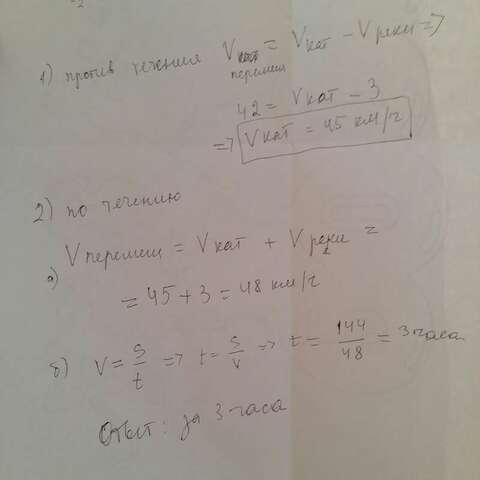 1) против течения Vперемещ = Vкат − Vреки =>
42 = Vкат − 3
=> Vкат = 45 км/ч
2) по течению
а) Vперемещ = Vкат + Vреки =
= 45 + 3 = 48 км/ч
б) V = S/t => t = S/V => t = 144/48 = 3 часа
Ответ: за 3 часа